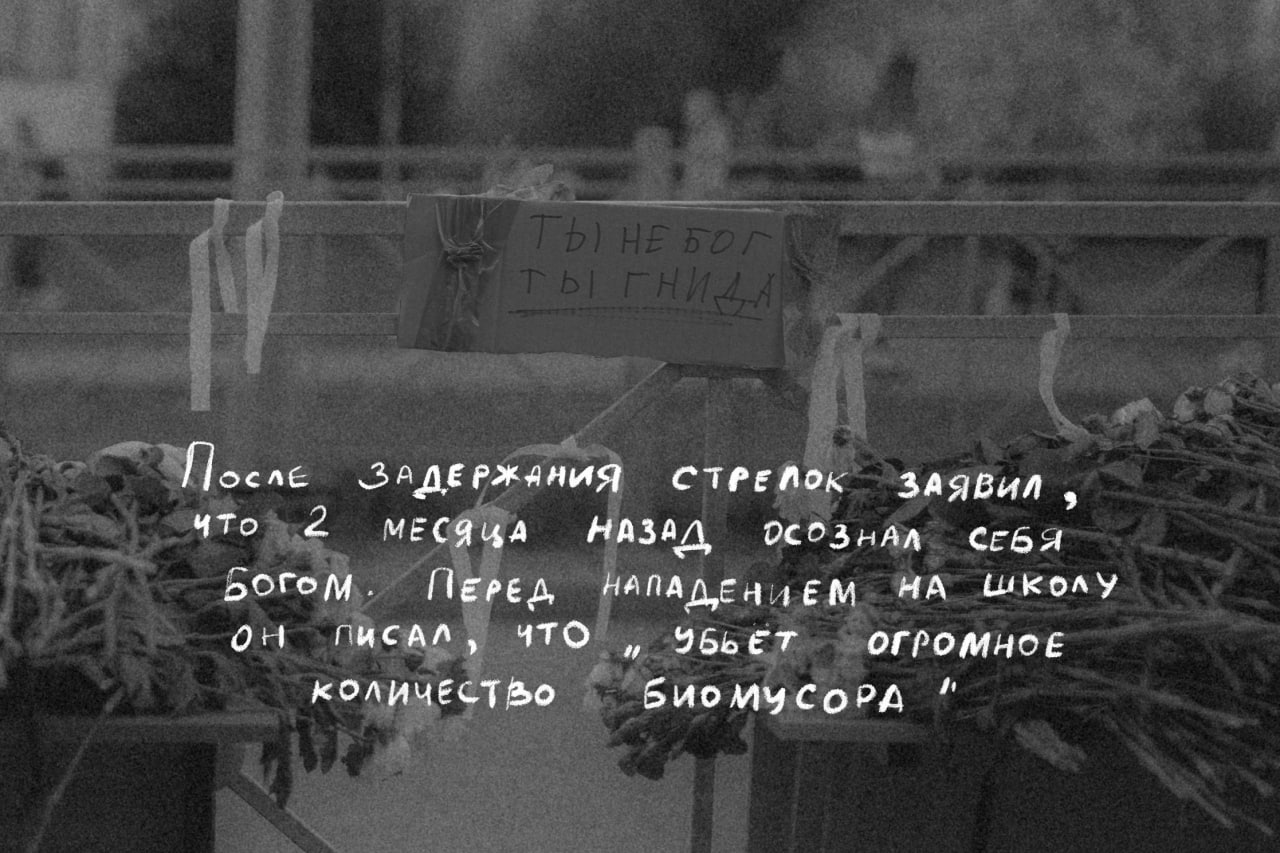 ТЫ НЕ БОГ
ТЫ ГНИДА
После задержания стрелок заявил,
что 2 месяца назад осознал себя
богом. Перед нападением на школу
он писал, что „убьёт огромное
количество биомусора"